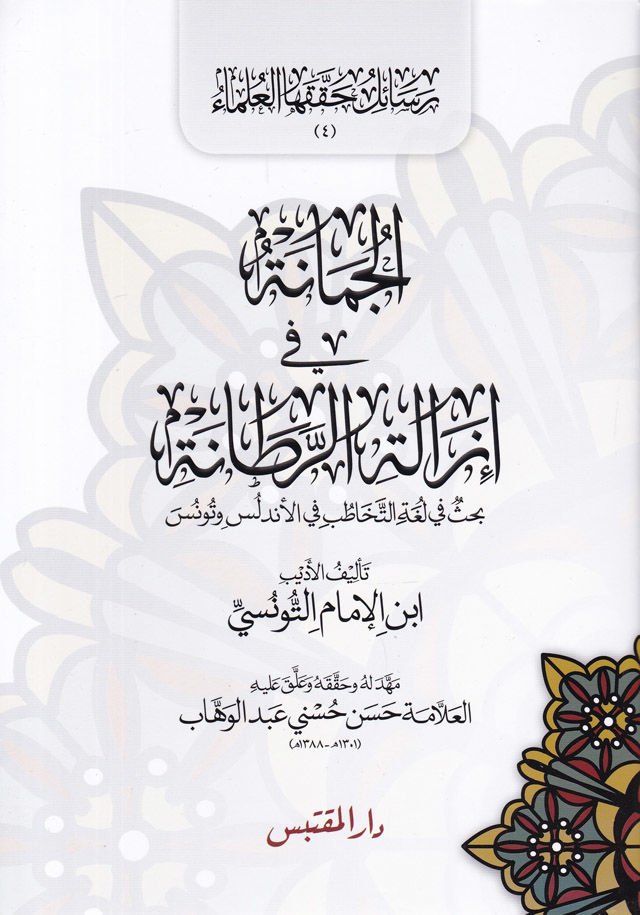 رَسَائِلُ حَقَّقَهَا العُلَمَاءُ
(٤)
الجُمَانَةُ
فِي
إِزَالَةِ الرَّطَانَةِ
بحثٌ في لُغَةِ التَّخَاطُبِ في الأندلُسِ وتُونُسَ
تَأليفُ الأَدِيْبِ
ابن الإمام التُّونُسيِّ
مَهَّدَ لَهُ وحَقَّقَهُ وَعَلَّقَ عَلَيهِ
العَلَّامَة حَسَن حُسْني عَبد الوَهَّاب
(١٣٠١هـ - ١٣٨٨هـ)
دار المقتبس